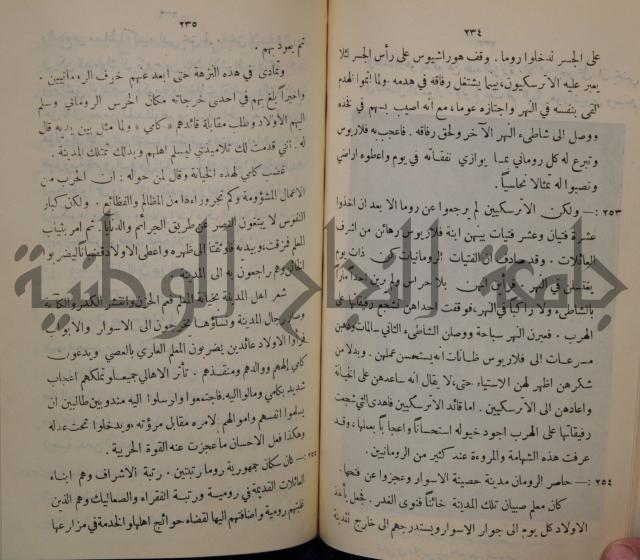 ٢٣٤
على الجسر ندخلوا روما . وقف هوراشيوس على رأس الجسر لئلا
يعبر عليه الاترسكيون، بينما يشتغل رفاقه في هدمه. ولما اتموا الهدم
القى بنفسه في النهر واجتازه عوما، مع انه اصيب بسهم في فخذه
ووصل الى شاطىء النهر الآخر ولحق رفاقه . فاعجب به فلاريوس
وتبرع له كل روماني بما يوازي نفقاته في يوم واعطوه اراضي
ونصبوا له تمثالا نحاسياً.
٢٥٣ :— ولكن الاترسكيين لم يرجعوا عن روما الا بعد ان اخذوا
عشرة فتيان وعشر فتيات بينهن ابنة فلاريوس رهائن من اشرف
العائلات . وقد صادف ان الفتيات الرومانيات كن ذات يوم
يغتسلن في النهر . فراين انهن بلا حراس ولم يرين احدا مارا
بالشاطىء ولا راكبا في النهر، فوقفت احداهن تشجع رفيقاتها على
الهرب . فعبرن النهر سباحة ووصلن الشاطىء الثاني سالمات وذهبن
مسرعات الى فلاريوس ظانات انه يستحسن عملهن . وبدلا من
شكرهن اظهر لهن الاستياء حتى لا يقال انه ساعدهن على الخيانة
واعادهن الى الاترسكيين . اما قائد الاترسكيين فاهدى التي شجعت
رفيقاتها على الهرب اجود خيوله استحساناً واعجاباً بعملها، وقد
عرفت هذه الشهامة والمروءة عند كثير من الرومانيين .
٢٥٤ :— حاصر الرومان مدينة حصينة الاسوار وعجزوا عن فتحها.
كان معلم صبيان تلك المدينة خائناً فنوى الغدر . فجعل يأخذ
الاولاد كل يوم الى جوار الاسوار ويستدرجهم الى خارج المدينة
٢٣٥
ثم يعود بهم .
وتمادى في هذه النزهة حتى ابعد عنهم خوف الرومانيين .
واخيراً بلغ بهم في احدى خرجاته مكان الحرس الروماني وسلم
اليهم الاولاد وطلب مقابلة قائدهم « كامي » ولما مثل بين يديه قال
له : أني قدمت لك تلاميذي ليسلم اهلهم وبذلك تمتلك المدينة .
غضب كامي لهذه الخيانة وقال لمن حوله : ان الحرب من
الاعمال المشؤومة وكم تجر وراءها من المظالم والفظائع . ولكن كبار
النفوس لا يبتغون النصر عن طريق الجرائم والدنايا. ثم امر بثياب
المعلم فمزقت، وبيديه فاوثقتا الى ظهره واعطى الاولاد قضباناً ليضربوا
الخائن وهم راجعون به الى المدينة .
شعر اهل المدينة بخيانة المعلم فعم الحزن وانتشر الكدر والكآبة
وصار رجال المدينة ونساؤها يخرجون الى الاسوار والابواب
فرأوا الاولاد عائدين يضربون المعلم العاري بالعصي ويدعون
كامي إلههم ووالدهم ومنقذهم . تأثر الاهالي جميعا وتملكهم اعجاب
شديد بكامي ومالوا اليه. فاجتمعوا وارسلوا اليه مندوبين طالبين ان
يسلموا انفسهم واموالهم لامره مقابل مروءته، ويدخلوا تحت عدله
وهكذا فعل الاحسان ما عجزت عنه القوة الحربية .
٢٥٥ :— كان سكان جمهورية روما رتبتين . رتبة الاشراف وهم ابناء
العائلات القديمة في رومية ورتبة الفقراء والصعاليك وهم الذين
غلبتهم رومية واضافتهم اليها لقضاء حوائج اهلها والخدمة في مزارعها
جامعة النجاح الوطنية